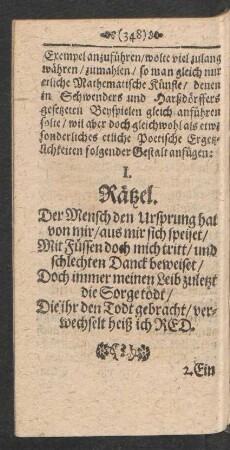 (348)
Exempel anzuführen/wolte viel zulang
währen/zumahlen/so man gleich nur
etliche Mathematische Künste/denen
in Schwenders und Harßdörffers
gesetzten Beyspielen gleich anführen
solte/wil aber doch gleichwohl als etwz
sonderliches etliche Poetische Ergetz-
lichkeiten folgender Gestalt anfügen:
I.
Rätzel.
Der Mensch den Ursprung hat
von mir/aus mir sich speiset/
Mit Füssen doch mich tritt/und
schlechten Danck beweiset/
Doch immer meinen Leib zuletzt
die Sorge tödt/
Die ihr den Todt gebracht/ver-
wechselt heiß ich RED.
2. Ein